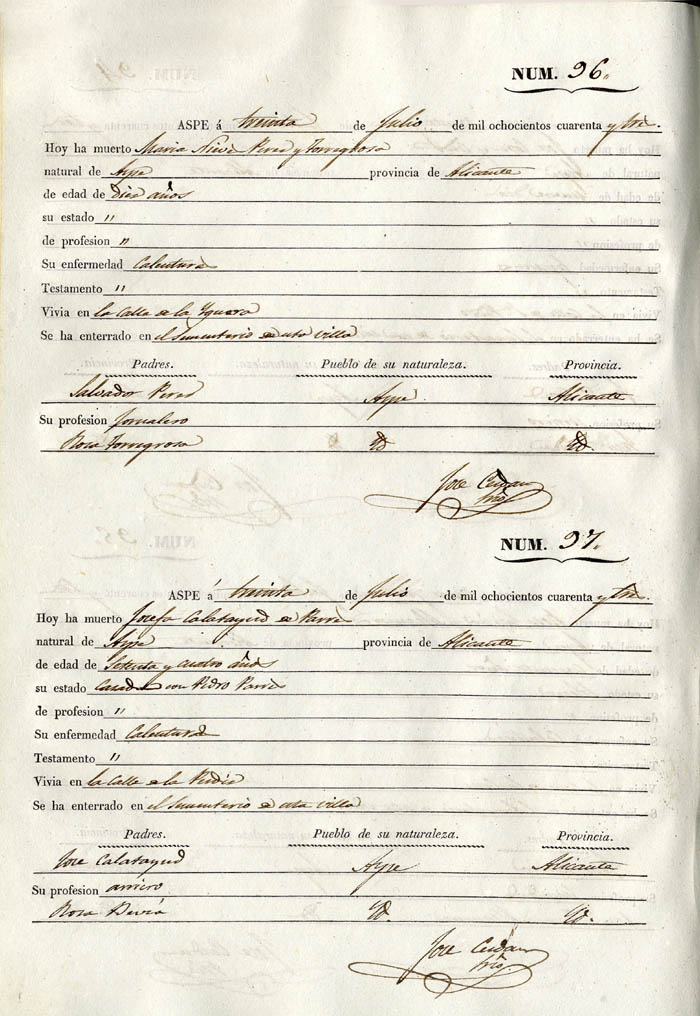 NUM. 96.
ASPE á treinta de Julio de mil ochocientos cuarenta y tres.
Hoy ha muerto Maria Nieve Peres y Torregrosa
natural de Aspe provincia de Alicante
de edad de diez años
su estado "
de profesion "
Su enfermedad Calentura
Testamento "
Vivia en la Calle de la Yguera
Se ha enterrado en el Sementerio de esta villa
Padres. Pueblo de su naturaleza. Provincia.
Salvador Peres Aspe Alicante
Su profesion Jornalero
Rosa Torregrosa Yd Yd.
Jose Cerdan
NUM. 97.
ASPE á treinta de Julio de mil ochocientos cuarenta y tres.
Hoy ha muerto Josefa Calatayud de
natural de Aspe provincia de Alicante
de edad de Setenta y cuatro años
su estado Casada con Pedro
de profesion "
Su enfermedad Calentura
Testamento "
Vivia en la Calle de la
Se ha enterrado en el Sementerio de esta villa
Padres. Pueblo de su naturaleza. Provincia.
Jose Calatayud Aspe Alicante
Su profesion arriero
Rosa Yd. Yd.
Jose Cerdan